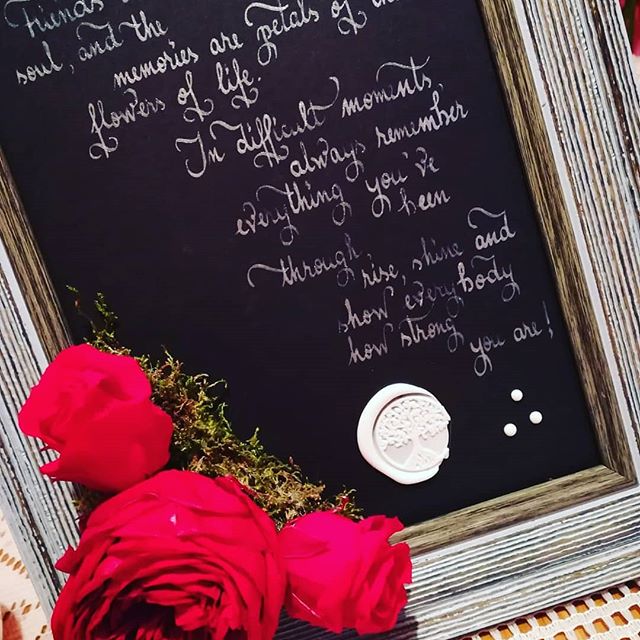 Friends
soul, and the
memories are petals of the
flowers of life.
In difficult moments,
always remember
everything you've
been
through,
rise, shine and
show everybody
how strong
you are!